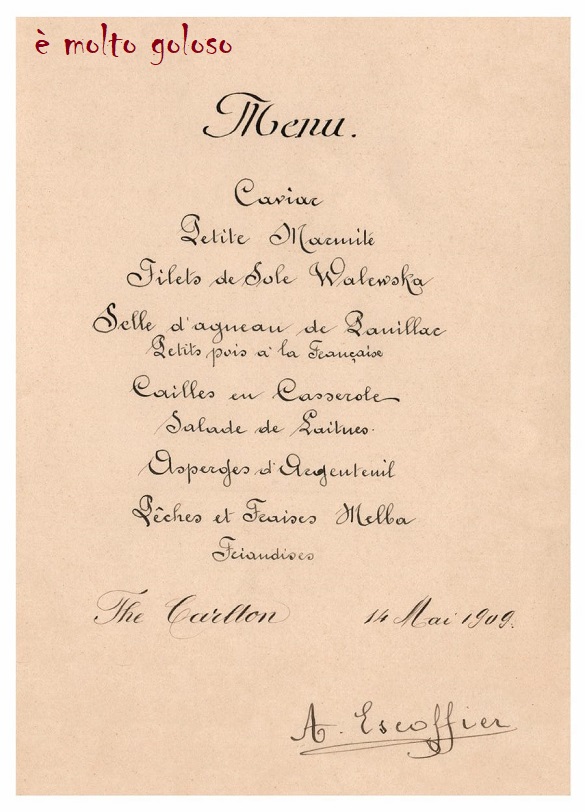 è molto goloso
Menu.
Caviar
Petite Marmite
Filets de Sole Walewska
Selle d'agneau de Pauillac
Petits pois à la Française
Cailles en Casserole
Salade de Laitues.
Asperges d'Argenteuil
Pêches et Fraises Melba
Friandises
The Carlton 14 Mai 1909.
A. Escoffier